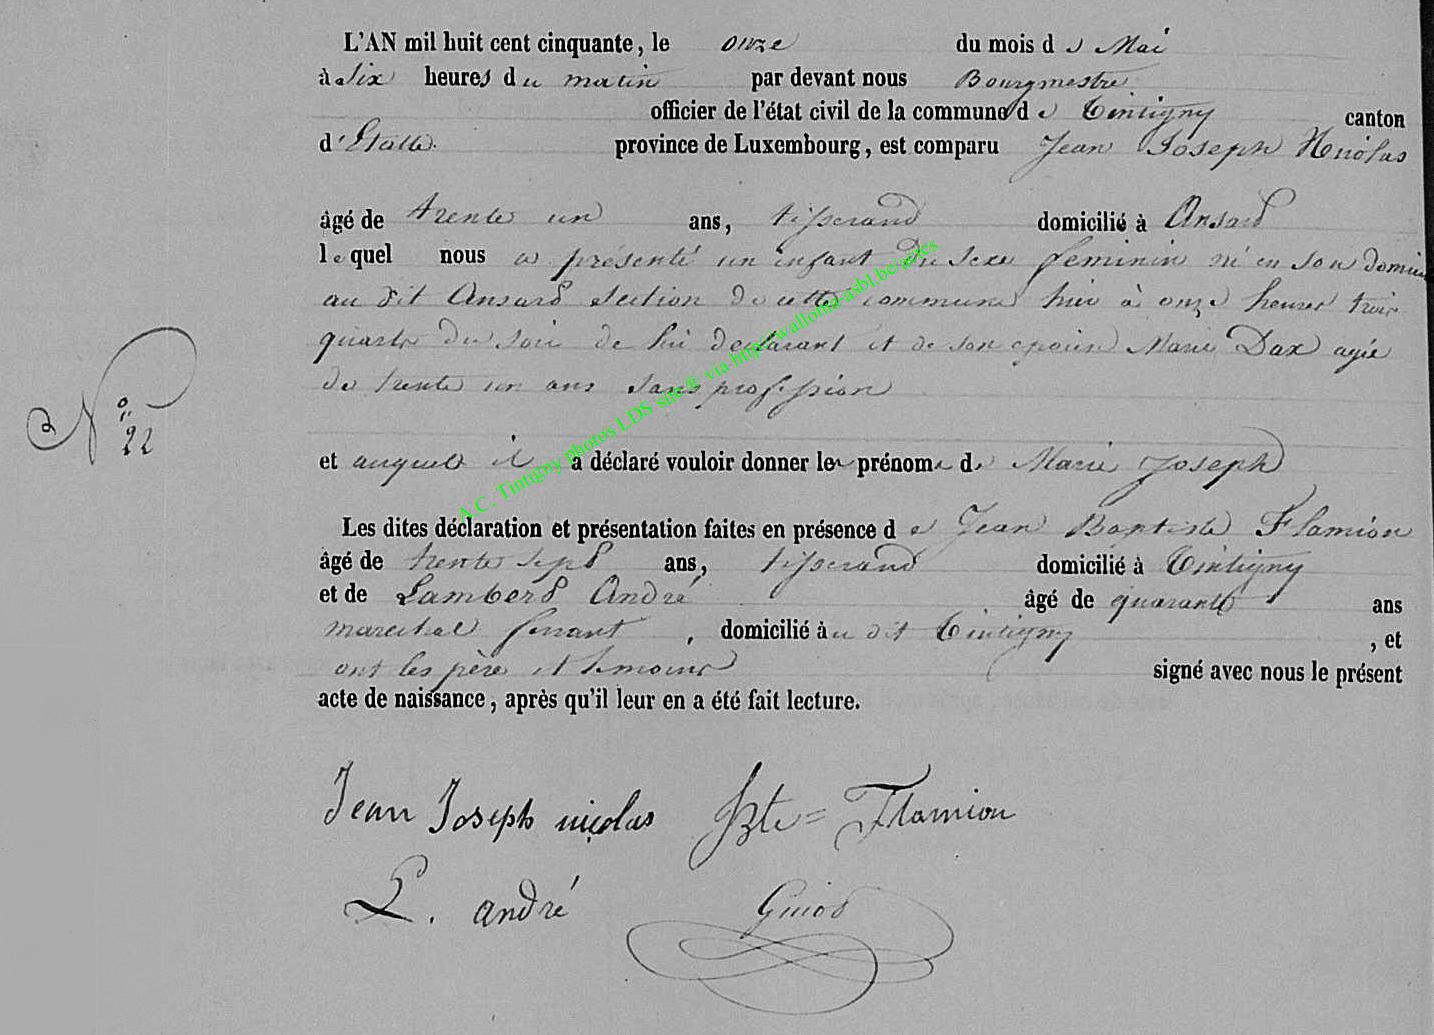 L'AN mil huit cent cinquante, le onze du mois de Mai
à Six heures du matin par devant nous Bourgmestre
officier de l'état civil de la commune de Tintigny canton
d'Etalle province de Luxembourg, est comparu Jean Joseph Nicolas
âgé de trente un ans, tisserand domicilié à Ansard
lequel nous a présenté un enfant du sexe feminin né en son domici
au dit Ansard section de cette commune hier à onze heures trois
quarts du soir de lui declarant et de son epouse Marie Dax agée
de trente un ans sans profession
N° 22
et auquel il a déclaré vouloir donner les prénoms de Marie Joseph
Les dites déclaration et présentation faites en présence de Jean Baptiste Flamion
âgé de trente sept ans, tisserand domicilié à Tintigny
et de Lambert André âgé de quarante ans
marechal ferrant, domicilié au dit Tintigny, et
ont les père et temoins signé avec nous le présent
acte de naissance, après qu'il leur en a été fait lecture.
Jean Joseph nicolas JBte= Flamion
L. andré Guiot
A.C. Tintigny photos LDS site via http://wallonia-asbl.be/actes